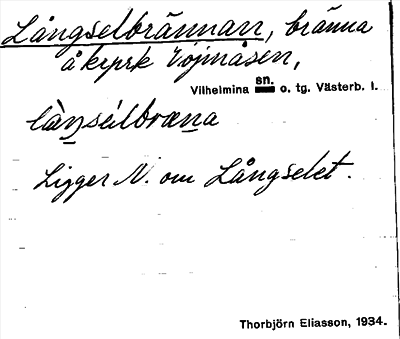 Långselbrännan, bränna
å krprk Vojmåsen,
Vilhelmina sn. o. tg. Västerb. l.
la̱nséilbræna
Ligger N. om Långselet.
Thorbjörn Eliasson, 1934.